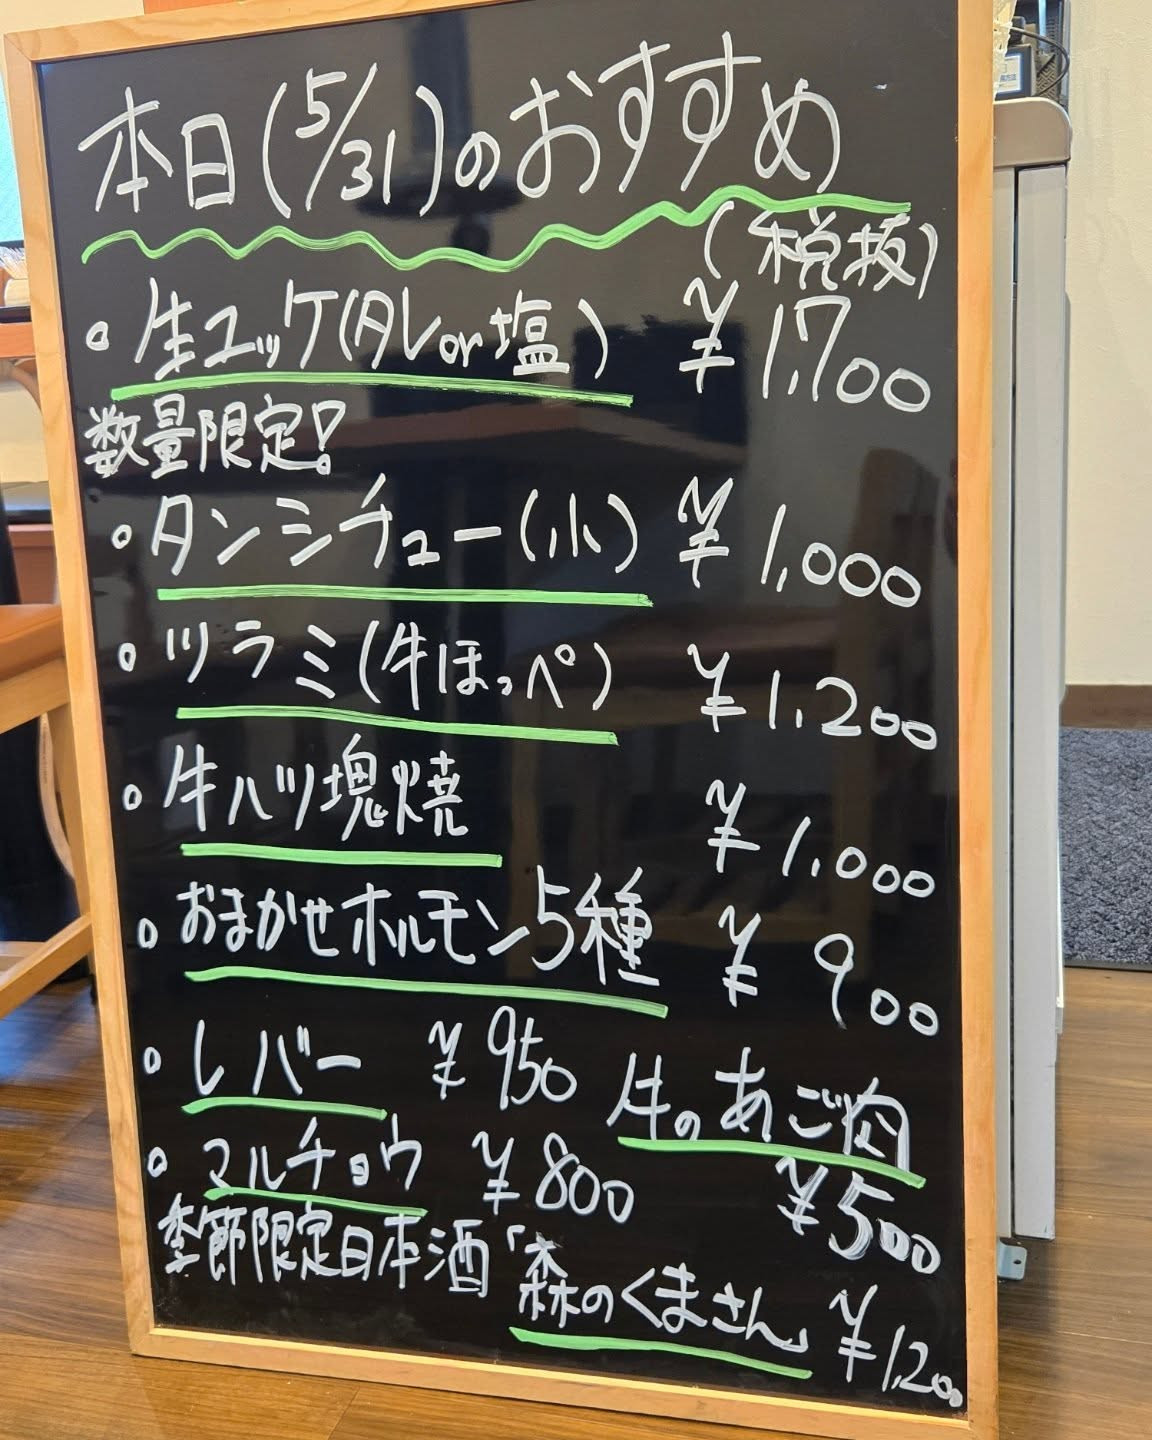 本日(5/31)のおすすめ
(税抜)
。生ユッケ(タレor塩) ¥1,700
数量限定!
。タンシチュー(小) ¥1,000
。ツラミ(牛ほっぺ) ¥1,200
。牛ハツ塊焼 ¥1,000
。おまかせホルモン5種 ¥900
。レバー ¥950
牛のあご肉
¥500
。マルチョウ ¥800
季節限定日本酒「森のくまさん」 ¥1,200